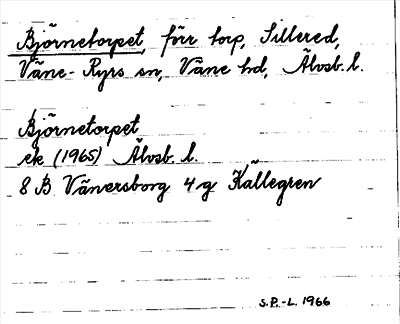 Björnetorpet, förr torp, Sillered,
Väne-Ryrs sn, Väne hd, Älvsb. l.
Björnetorpet
ek (1965) Älvsb. l.
8 B Vänersborg 4 g Källegren
S.P.-L. 1966